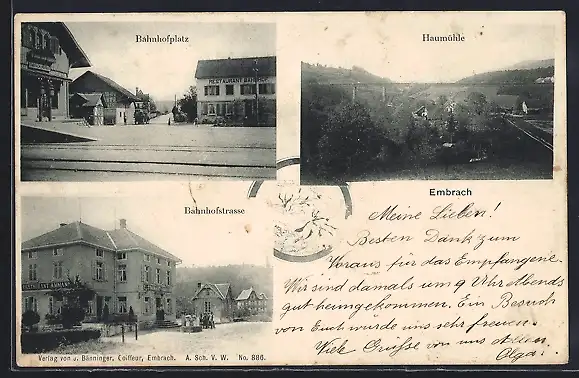 Bahnhofplatz
RESTAURANT BAHNHOF
Haumühle
Embrach
Bahnhofstrasse
RESTAURANT AMMANN
Meine Lieben!
Besten Dank zum
Voraus für das Empfangene.
Wir sind damals um 9 Uhr Abends
gut heimgekommen. Ein Besuch
von Euch würde uns sehr freuen.
Viele Grüsse von uns Allen
Olga.
Verlag von J. Bänninger, Coiffeur, Embrach. A. Sch. V. W. No. 886.